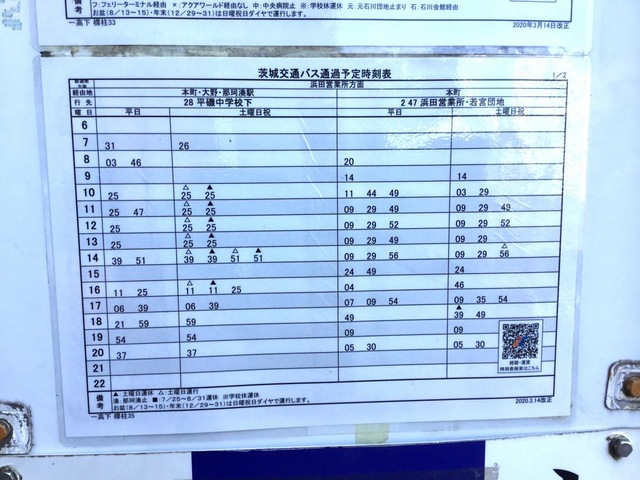 フ：フェリーターミナル経由 ×：アクアワールド経由なし 中：中央病院止 ※：学校休運休 元：元石川団地止まり 石：石川会館経由
お盆(8/13～15)・年末(12/29～31)は日曜祝日ダイヤで運行します。
一高下 標柱33
2020年3月14日改正
茨城交通バス通過予定時刻表 1/2
浜田営業所方面
経由地 本町・大野・那珂湊駅 本町
行先 28 平磯中学校下 2 47 浜田営業所・若宮団地
曜日 平日 土曜日祝 平日 土曜日祝
6
7 31 26
8 03 46 20
9 14 14
△ ▲
10 25 25 25 11 44 49 03 29
△ ▲
11 25 47 25 25 09 29 49 09 29 49
△ ▲
12 25 25 25 09 29 52 09 29 52
△ ▲
13 25 25 25 09 29 49 09 29 49
△ ▲ △ ▲ △
14 39 51 39 39 51 51 09 29 56 09 29 56
15 24 49 24
△ ▲
16 11 25 11 11 25 04 46
17 06 39 06 39 07 09 54 09 35 54
▲
18 21 59 59 39 49
19 54 54
20 37 37 05 30 05 30
21
22
経路・運賃
時刻表検索はこちら
備考
▲：土曜日運休 △：土曜日運行
湊：那珂湊止 ■：7/25～8/31運休 ※学校休運休
お盆(8/13～15)・年末(12/29～31)は日曜祝日ダイヤで運行します。
一高下 標柱35
2020.3.14改正